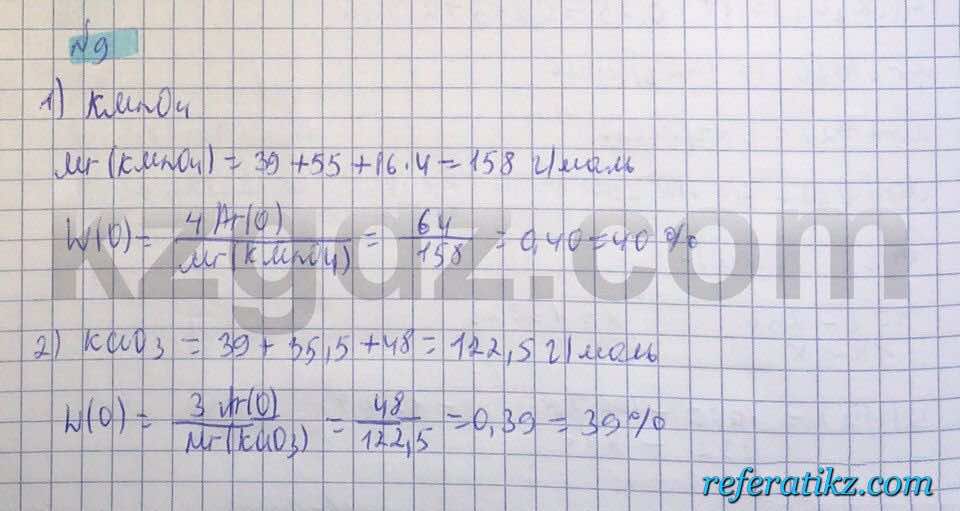 № 9
1) KMnO4
Mr(KMnO4) = 39 + 55 + 16 · 4 = 158 г/моль
W(O) = 4 Ar(O) / Mr(KMnO4) = 64 / 158 = 0,40 = 40 %
2) KClO3 = 39 + 35,5 + 48 = 122,5 г/моль
W(O) = 3 Ar(O) / Mr(KClO3) = 48 / 122,5 = 0,39 = 39 %
kzgdz.com
referatikz.com